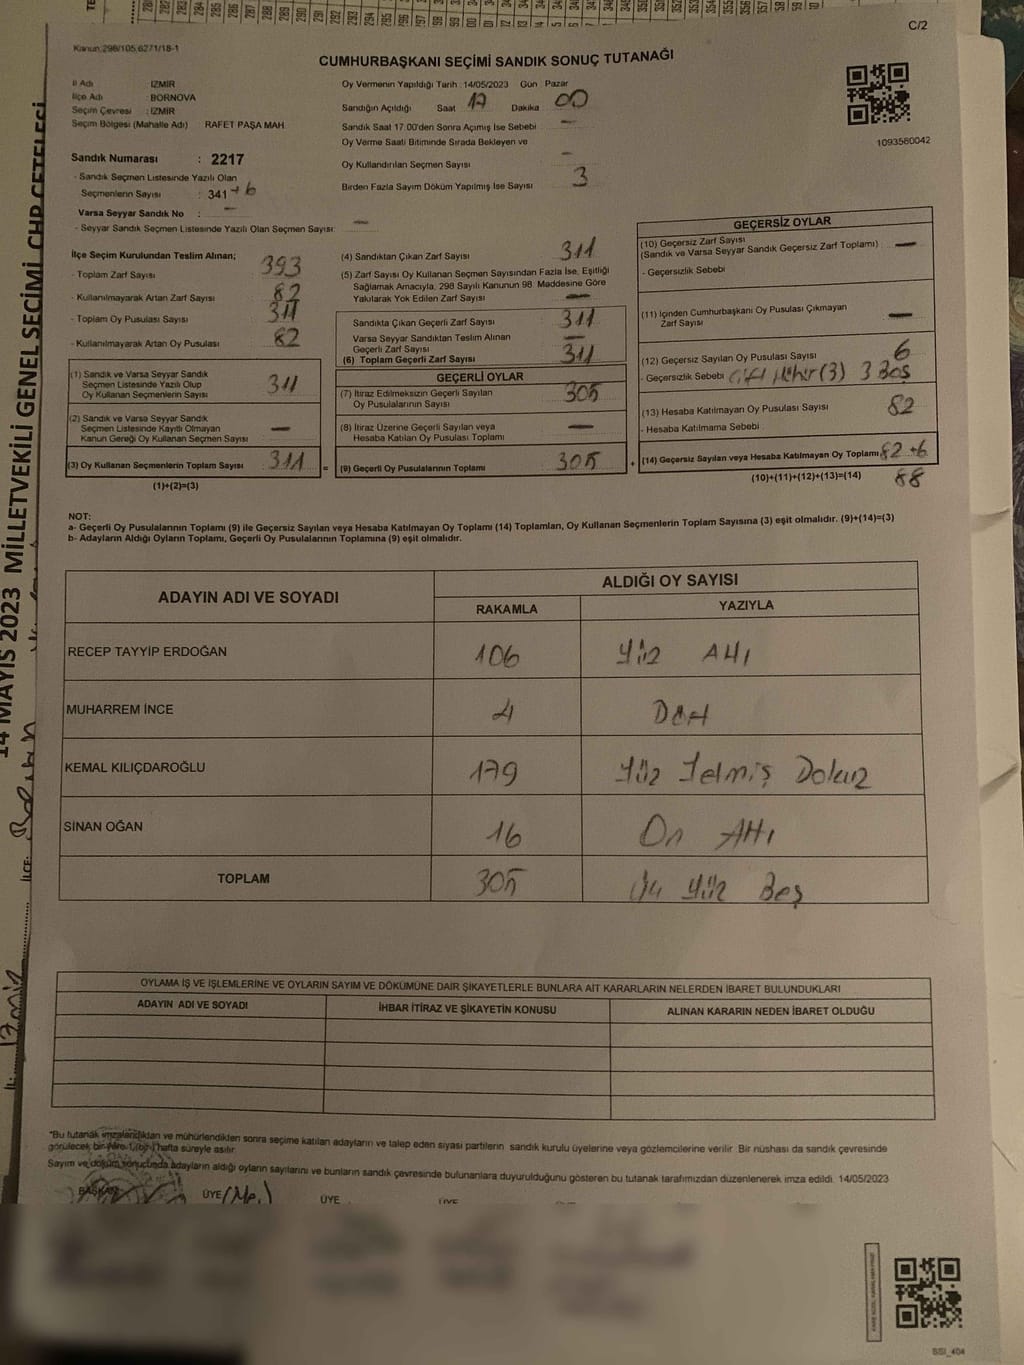 C/2
Kanun:298/105,6271/18-1
CUMHURBAŞKANI SEÇİMİ SANDIK SONUÇ TUTANAĞI
İl Adı : İZMİR
İlçe Adı : BORNOVA
Seçim Çevresi : İZMİR
Seçim Bölgesi (Mahalle Adı) RAFET PAŞA MAH.
Sandık Numarası : 2217
- Sandık Seçmen Listesinde Yazılı Olan
Seçmenlerin Sayısı : 341 + 6
Varsa Seyyar Sandık No : —
- Seyyar Sandık Seçmen Listesinde Yazılı Olan Seçmen Sayısı: —
Oy Vermenin Yapıldığı Tarih :14/05/2023 Gün Pazar
Sandığın Açıldığı Saat 17 Dakika 00
Sandık Saat 17:00'den Sonra Açımış İse Sebebi —
Oy Verme Saati Bitiminde Sırada Bekleyen ve
Oy Kullandırılan Seçmen Sayısı —
Birden Fazla Sayım Döküm Yapılmış İse Sayısı 3
1093580042
İlçe Seçim Kurulundan Teslim Alınan;
- Toplam Zarf Sayısı 393
- Kullanılmayarak Artan Zarf Sayısı 82
- Toplam Oy Pusulası Sayısı
- Kullanılmayarak Artan Oy Pusulası 82
(1) Sandık ve Varsa Seyyar Sandık
Seçmen Listesinde Yazılı Olup
Oy Kullanan Seçmenlerin Sayısı 311
(2) Sandık ve Varsa Seyyar Sandık
Seçmen Listesinde Kayıtlı Olmayan
Kanun Gereği Oy Kullanan Seçmen Sayısı —
(3) Oy Kullanan Seçmenlerin Toplam Sayısı 311 =
(1)+(2)=(3)
(4) Sandıktan Çıkan Zarf Sayısı 311
(5) Zarf Sayısı Oy Kullanan Seçmen Sayısından Fazla İse, Eşitliği
Sağlamak Amacıyla, 298 Sayılı Kanunun 98. Maddesine Göre
Yakılarak Yok Edilen Zarf Sayısı —
Sandıkta Çıkan Geçerli Zarf Sayısı 311
Varsa Seyyar Sandıktan Teslim Alınan
Geçerli Zarf Sayısı —
(6) Toplam Geçerli Zarf Sayısı 311
GEÇERLİ OYLAR
(7) İtiraz Edilmeksizin Geçerli Sayılan
Oy Pusulalarının Sayısı 305
(8) İtiraz Üzerine Geçerli Sayılan veya
Hesaba Katılan Oy Pusulası Toplamı —
(9) Geçerli Oy Pusulalarının Toplamı 305 +
GEÇERSİZ OYLAR
(10) Geçersiz Zarf Sayısı
(Sandık ve Varsa Seyyar Sandık Geçersiz Zarf Toplamı) —
- Geçersizlik Sebebi
(11) İçinden Cumhurbaşkanı Oy Pusulası Çıkmayan
Zarf Sayısı —
(12) Geçersiz Sayılan Oy Pusulası Sayısı 6
- Geçersizlik Sebebi Çift Mühür (3) 3 Boş
(13) Hesaba Katılmayan Oy Pusulası Sayısı 82
- Hesaba Katılmama Sebebi
(14) Geçersiz Sayılan veya Hesaba Katılmayan Oy Toplamı 82 +6
(10)+(11)+(12)+(13)=(14) 88
NOT:
a- Geçerli Oy Pusulalarının Toplamı (9) ile Geçersiz Sayılan veya Hesaba Katılmayan Oy Toplamı (14) Toplamları, Oy Kullanan Seçmenlerin Toplam Sayısına (3) eşit olmalıdır. (9)+(14)=(3)
b- Adayların Aldığı Oyların Toplamı, Geçerli Oy Pusulalarının Toplamına (9) eşit olmalıdır.
ADAYIN ADI VE SOYADI
ALDIĞI OY SAYISI
RAKAMLA YAZIYLA
RECEP TAYYİP ERDOĞAN 106 Yüz Altı
MUHARREM İNCE 4 Dört
KEMAL KILIÇDAROĞLU 179 Yüz Yetmiş Dokuz
SİNAN OĞAN 16 On Altı
TOPLAM 305 Üç Yüz Beş
OYLAMA İŞ VE İŞLEMLERİNE VE OYLARIN SAYIM VE DÖKÜMÜNE DAİR ŞİKAYETLERLE BUNLARA AİT KARARLARIN NELERDEN İBARET BULUNDUKLARI
ADAYIN ADI VE SOYADI İHBAR İTİRAZ VE ŞİKAYETİN KONUSU ALINAN KARARIN NEDEN İBARET OLDUĞU
*Bu tutanak imzalandıktan ve mühürlendikten sonra seçime katılan adayların ve talep eden siyasi partilerin sandık kurulu üyelerine veya gözlemcilerine verilir. Bir nüshası da sandık çevresinde
görülecek bir yere 1 (bir) hafta süreyle asılır.
Sayım ve döküm sonucunda adayların aldığı oyların sayılarını ve bunların sandık çevresinde bulunanlara duyurulduğunu gösteren bu tutanak tarafımızdan düzenlenerek imza edildi. 14/05/2023
BAŞKAN ÜYE ÜYE ÜYE
SSI_404
14 MAYIS 2023 MİLLETVEKİLİ GENEL SEÇİMİ CHP ÇETELESİ
İL: İzmir İLÇE: